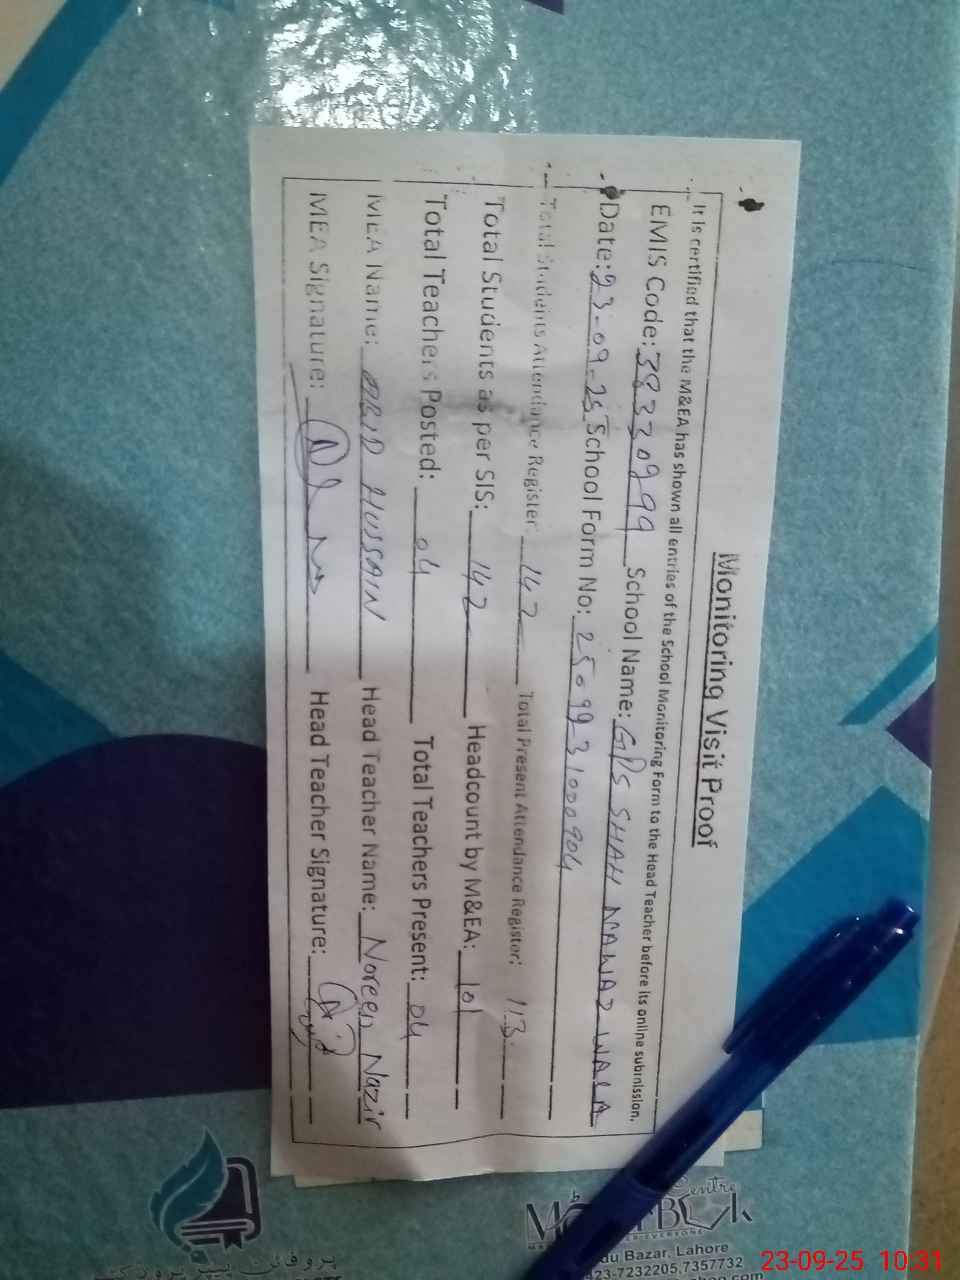 Monitoring Visit Proof
It is certified that the M&EA has shown all entries of the School Monitoring Form to the Head Teacher before its online submission.
EMIS Code: 38330999 School Name: GPS SHAH NAWAZ WALA
Date: 23-09-25 School Form No: 2509931000904
Total Students Attendance Register: 142 Total Present Attendance Register: 113
Total Students as per SIS: 142 Headcount by M&EA: 101
Total Teachers Posted: 04 Total Teachers Present: 04
MEA Name: ABID HUSSAIN Head Teacher Name: Noreen Nazir
MEA Signature: Head Teacher Signature:
Centre
du Bazar, Lahore
423-7232205, 7357732
23-09-25 10:31